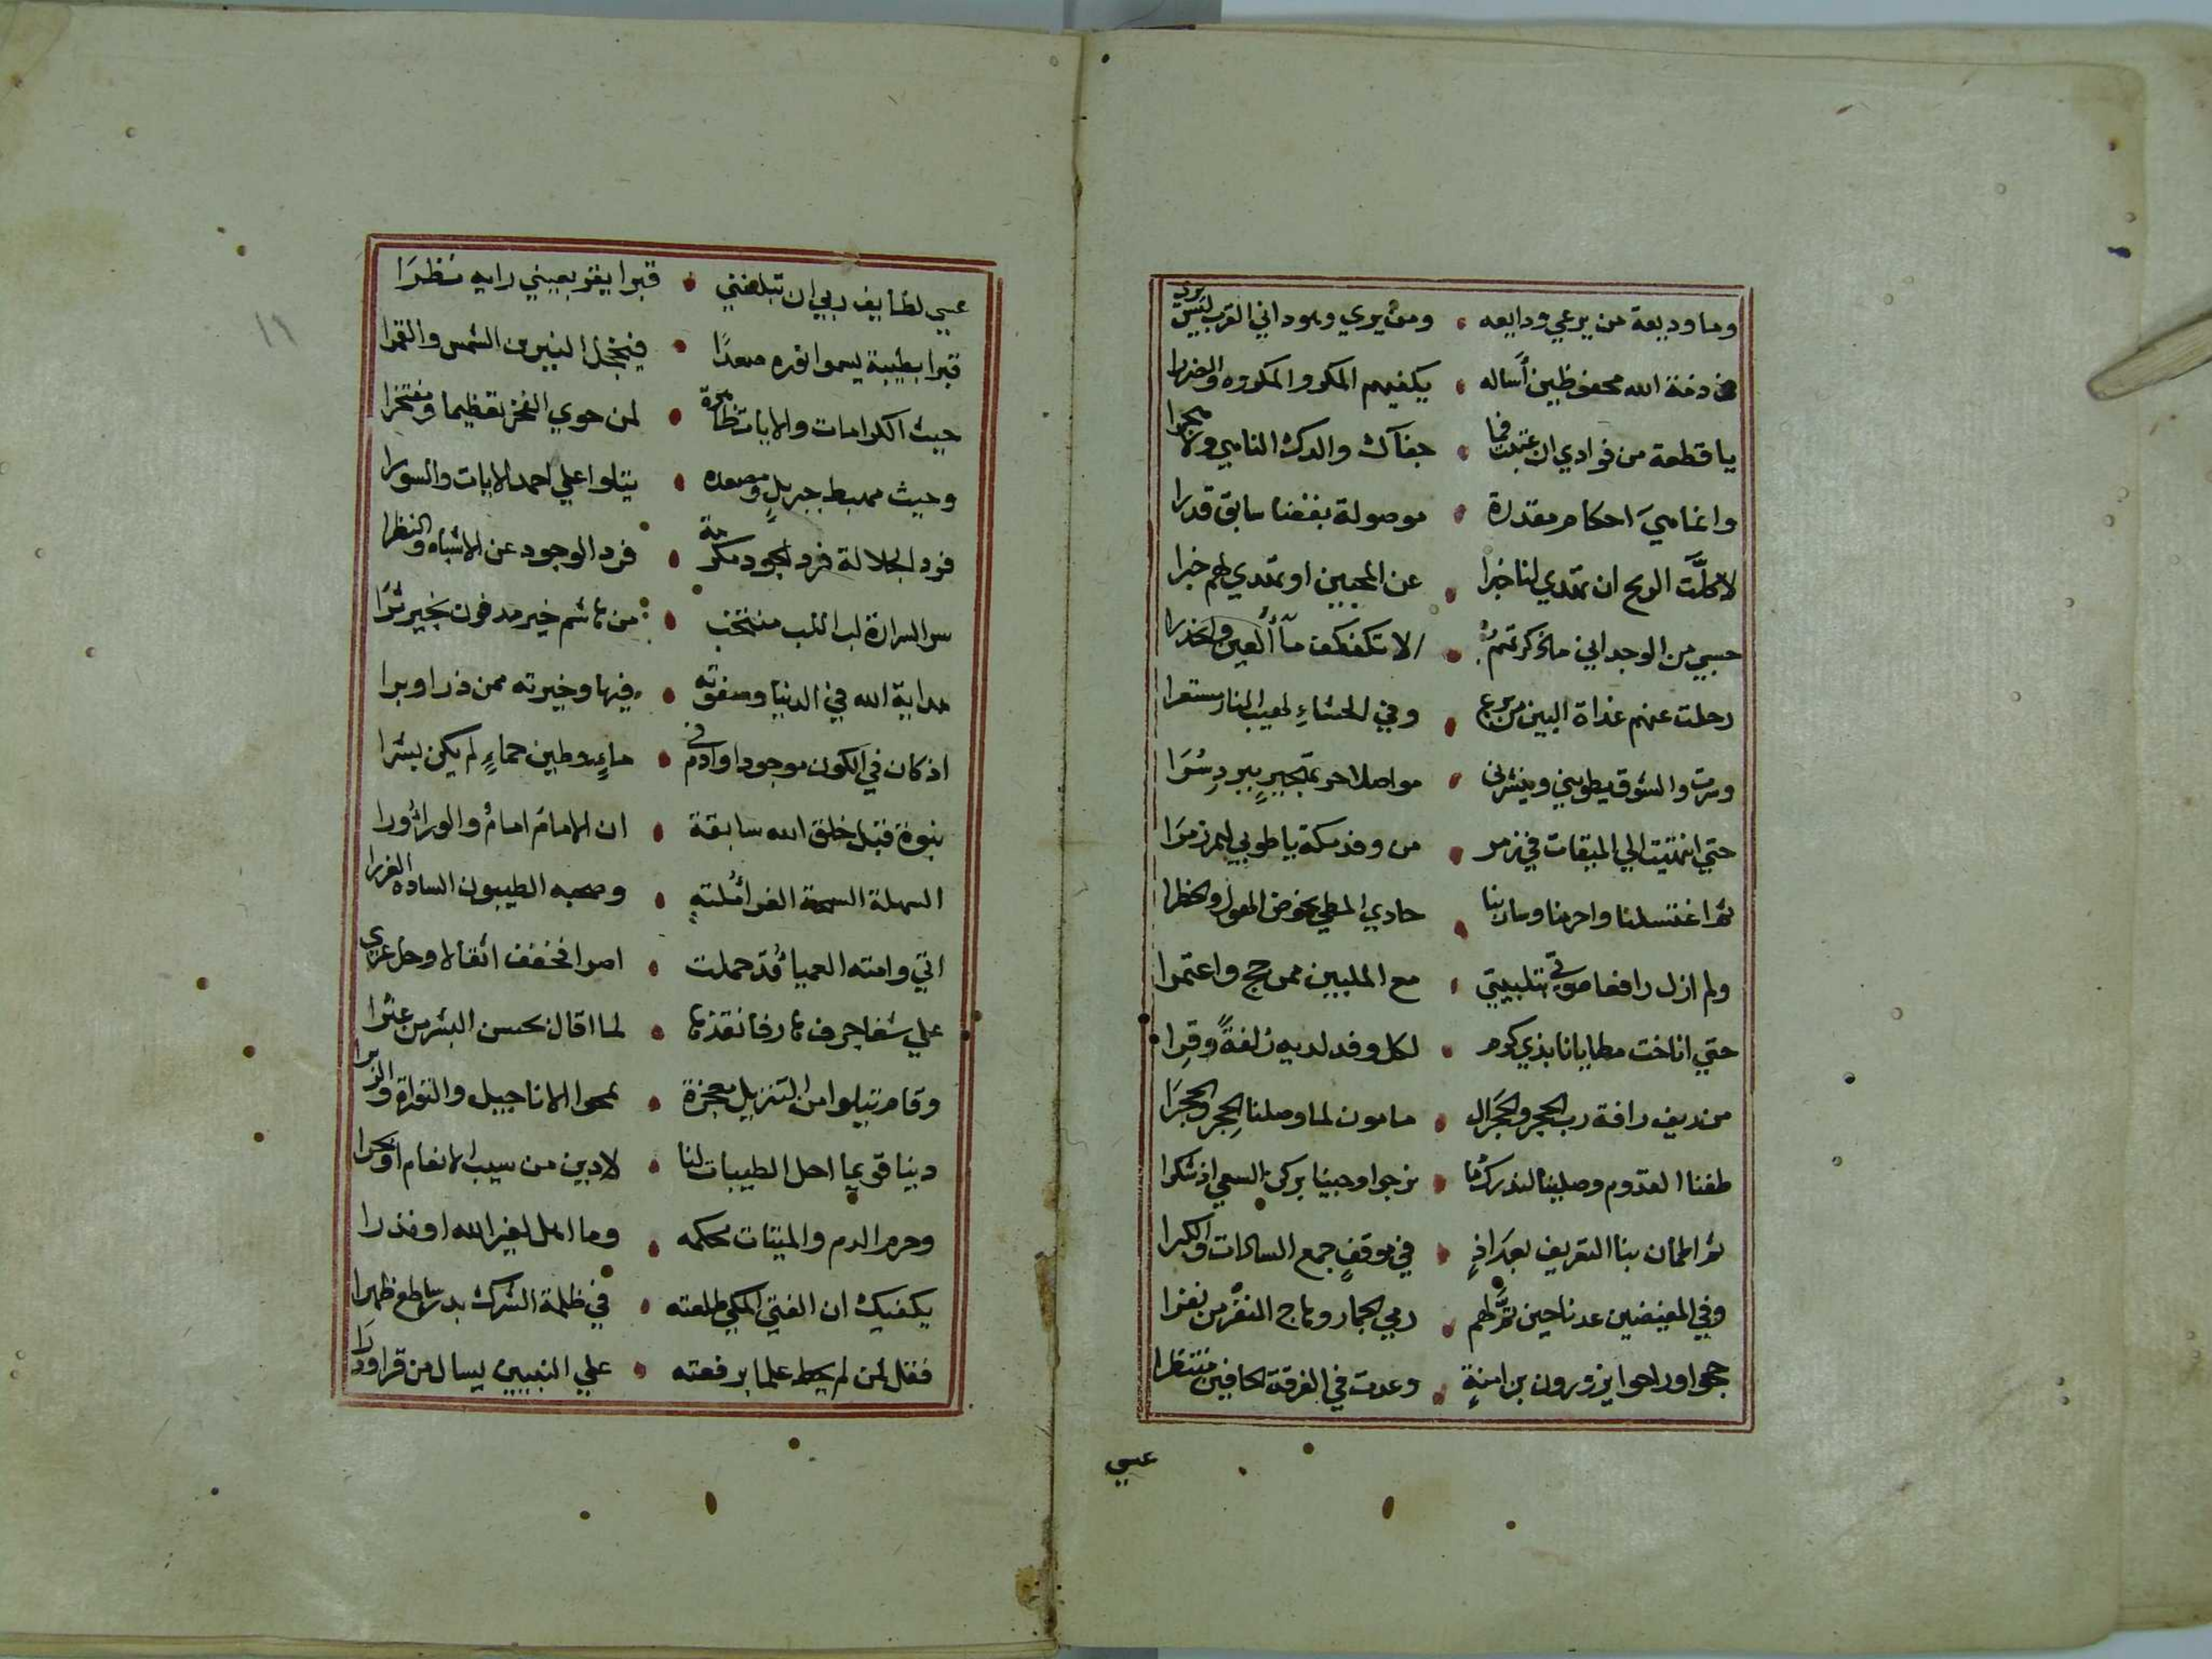 وما وديعة من يرعي ودايعه ومن يري وهو داني القرب ليس يرا
في ذمة الله محفوظين أساله يكفيهم المكر والمكروه والضررا
يا قطعة من فوادي ان عتبت فما جفآك والدك النامي ولا هجرا
وانما هي احكام مقدرة موصولة بقضا سابق قدرا
لا كلَّت الريح ان تهدي لنا خبرا عن المحبين او تهدي لهم خبرا
حسبي من الوجد اني ما ذكرتهم الا تكفكف مآ العين وانحدرا
رحلت عنهم غداة البين من برع وفي الحشاء لهيب النار مستعرا
وسرت والشوق يطويني وينشرني مواصلا حر تهجير ببرد سُرَا
حتي انتهيت الي الميقات في زمر من وفد مكة يا طوبي لهم زمرَا
ثم اغتسلنا واحرمنا وسار بنا حادي المطي يخوض الهول والخطرا
ولم ازل رافعا صوتي بتلبيتي مع الملبين ممن حج واعتمرا
حتي اناخت مطايانا بذي كرم لكل وفد لديه زلفةً وقِرا
من ريف رافة رب الحجر والحَجَر ال مامون لما وصلنا الحِجر والحَجرَا
طفنا القدوم وصلينا لندرك ما نرجوا وجينا بركن السعي اذ شكرا
ثم اطمان بنا التعريف بعد اذٍ في موقفٍ جمع السادات والكبرا
وفي المفيضين عدنا حين تمَّ لهم رمي الجمار وهاج النفْر من نفرا
حجوا وراحوا يزورون بن امنةٍ وعدت في الفرقة الجافين منتظرا
عسي
عسي لطايف ربي ان تبلغني قبرا يقر بعيني رايه نظرَا
قبرا بطيبة يسموا نوره صعدًا فيخجل النيرين الشمس والقمرا
حيث الكرامات والايات ظاهرة لمن حوي الفخر تعظيما ومفتخرا
وحيث مهبط جبريلٍ ومصعده يتلوا علي احمد الايات والسورا
فرد الجلالة فرد الجود مكرمة فرد الوجود عن الاشباه والنظرا
سر السرارة لب اللب منتخب من هاشم خير مدفون بخير ثرَا
هداية الله في الدنيا وصفوته فيها وخيرته ممن ذرا وبرا
اذ كان في الكون موجودا وادم في ماءٍ وطين حماءٍ لم يكن بشرا
بنبوة قبل خلق الله سابقة ان الامام امامٌ والورا ورا
السهلة السمحة الغرا مُلته وصحبه الطيبون الساده الغررا
اتي وامته العميا قد حملت اصرا فخفف اثقالا وحل عري
علي شفا جرف هار فانقذها لما اقال بحسن البشر من عثرا
وقام يتلوا من التنزيل معجزة تمحوا الاناجيل والتوراة والزبرا
دينا قويما احل الطيبات لنا لا دين من سيب الانعام او بحرا
وحرم الدم والميتات بحكمه وما اهل لغير الله او نذرا
يكفيك ان الفتي المكي طلعته في ظلمة الشرك بدر ساطع ظهرا
فقل لمن لم يحط علما برفعته علي النبيين يسال من قرا ودرَا
١٦